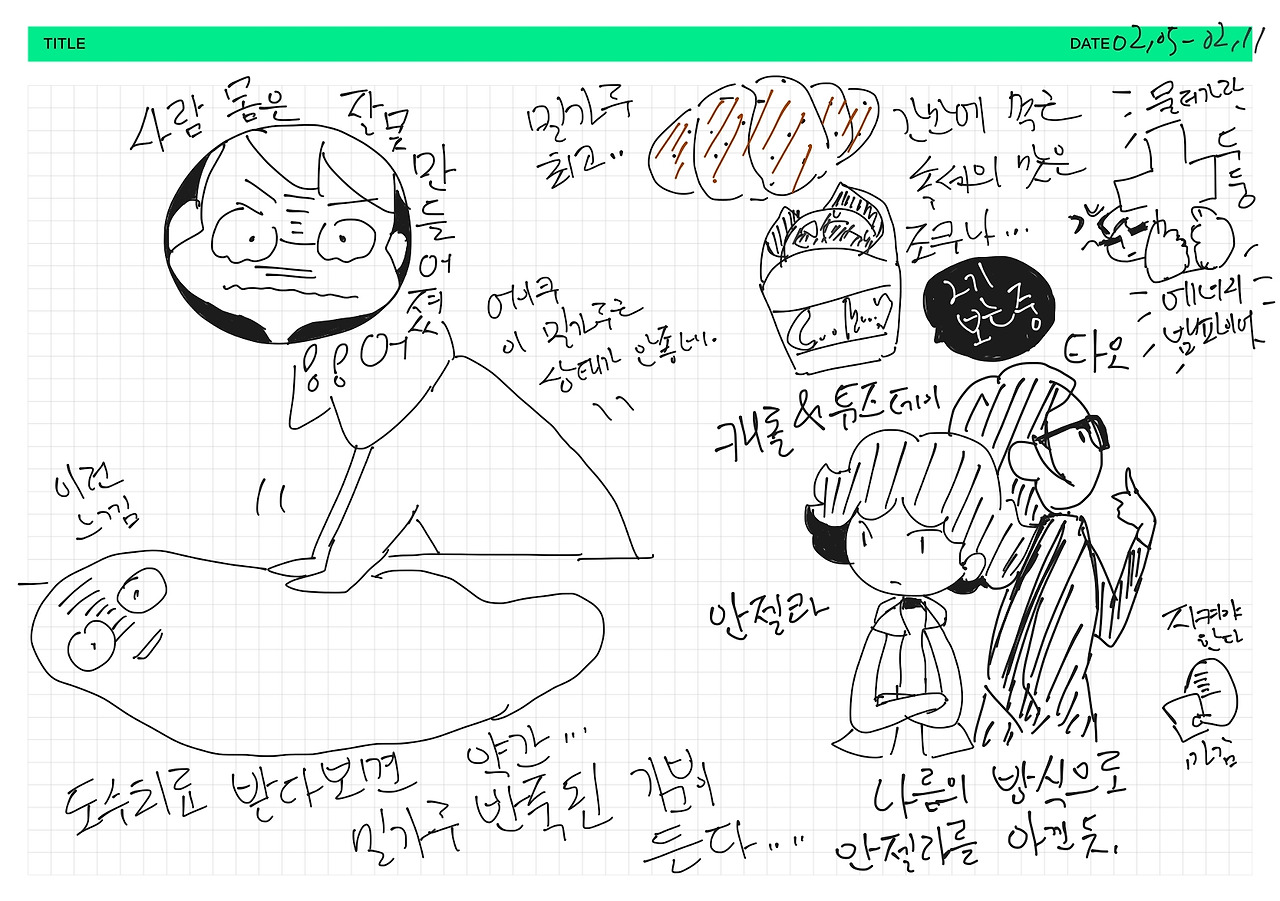 TITLE
DATE 02.05-02.11
사람 몸은 잘못 만들어졌어
밀가루
최고..
간만에 먹은
속세의 맛은
조무나...
Cookie
물러가라
두둥
에너지
뱀파이어
어이쿠
이 밀가루는
상태가 안좋네.
2기
보는 중
캐롤&튜즈데이
타오
안젤라
이런
느낌
지켜야
한다
나름의 방식으로
안젤라를 아낀 듯.
도수치료 받다보면 약간...
밀가루 반죽된 기분이
든다....